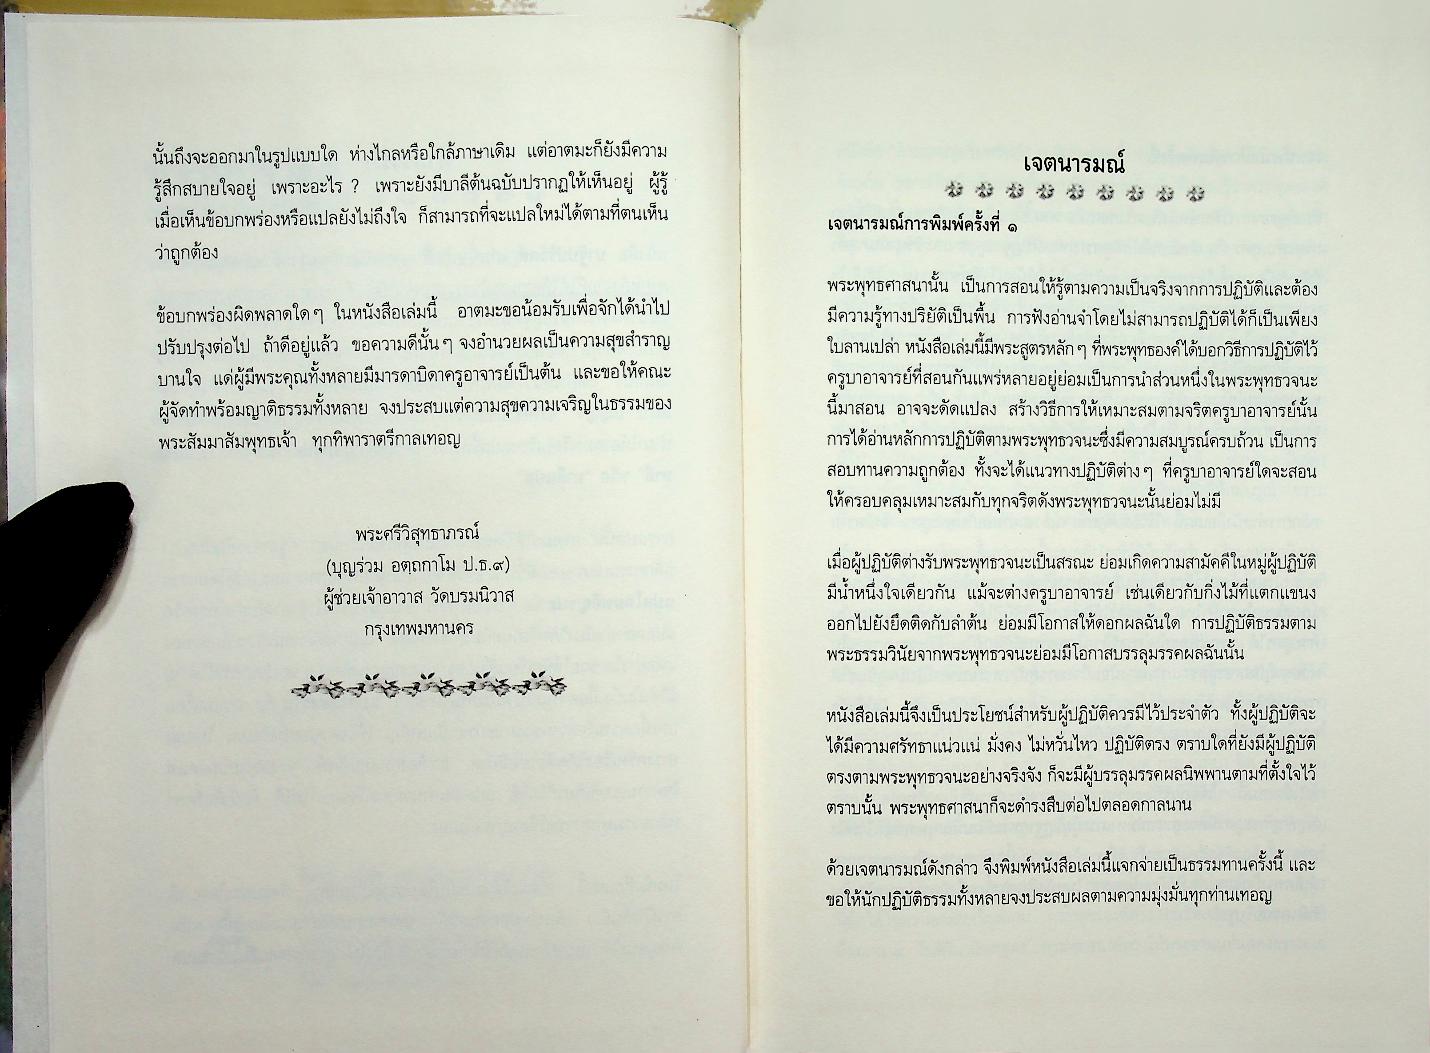 นั้นถึงจะออกมาในรูปแบบใด ห่างไกลหรือใกล้ภาษาเดิม แต่อาตมะก็ยังมีความ
รู้สึกสบายใจอยู่ เพราะอะไร ? เพราะยังมีบาลีต้นฉบับปรากฏให้เห็นอยู่ ผู้รู้
เมื่อเห็นข้อบกพร่องหรือแปลยังไม่ถึงใจ ก็สามารถที่จะแปลใหม่ได้ตามที่ตนเห็น
ว่าถูกต้อง
ข้อบกพร่องผิดพลาดใดๆ ในหนังสือเล่มนี้ อาตมะขอน้อมรับเพื่อจักได้นำไป
ปรับปรุงต่อไป ถ้าดีอยู่แล้ว ขอความดีนั้นๆ จงอำนวยผลเป็นความสุขสำราญ
บานใจ แด่ผู้มีพระคุณทั้งหลายมีมารดาบิดาครูอาจารย์เป็นต้น และขอให้คณะ
ผู้จัดทำพร้อมญาติธรรมทั้งหลาย จงประสบแต่ความสุขความเจริญในธรรมของ
พระสัมมาสัมพุทธเจ้า ทุกทิพาราตรีกาลเทอญ
พระศรีวิสุทธาภรณ์
(บุญร่วม อตฺถกาโม ป.ธ.๙)
ผู้ช่วยเจ้าอาวาส วัดบรมนิวาส
กรุงเทพมหานคร
เจตนารมณ์
เจตนารมณ์การพิมพ์ครั้งที่ ๑
พระพุทธศาสนานั้น เป็นการสอนให้รู้ตามความเป็นจริงจากการปฏิบัติและต้อง
มีความรู้ทางปริยัติเป็นพื้น การฟังอ่านจำโดยไม่สามารถปฏิบัติได้ก็เป็นเพียง
ใบลานเปล่า หนังสือเล่มนี้มีพระสูตรหลักๆ ที่พระพุทธองค์ได้บอกวิธีการปฏิบัติไว้
ครูบาอาจารย์ที่สอนกันแพร่หลายอยู่ย่อมเป็นการนำส่วนหนึ่งในพระพุทธวจนะ
นี้มาสอน อาจจะดัดแปลง สร้างวิธีการให้เหมาะสมตามจริตครูบาอาจารย์นั้น
การได้อ่านหลักการปฏิบัติตามพระพุทธวจนะซึ่งมีความสมบูรณ์ครบถ้วน เป็นการ
สอบทานความถูกต้อง ทั้งจะได้แนวทางปฏิบัติต่างๆ ที่ครูบาอาจารย์ใดจะสอน
ให้ครอบคลุมเหมาะสมกับทุกจริตดังพระพุทธวจนะนั้นย่อมไม่มี
เมื่อผู้ปฏิบัติต่างรับพระพุทธวจนะเป็นสรณะ ย่อมเกิดความสามัคคีในหมู่ผู้ปฏิบัติ
มีน้ำหนึ่งใจเดียวกัน แม้จะต่างครูบาอาจารย์ เช่นเดียวกับกิ่งไม้ที่แตกแขนง
ออกไปยังยึดติดกับลำต้น ย่อมมีโอกาสให้ดอกผลฉันใด การปฏิบัติธรรมตาม
พระธรรมวินัยจากพระพุทธวจนะย่อมมีโอกาสบรรลุมรรคผลฉันนั้น
หนังสือเล่มนี้จึงเป็นประโยชน์สำหรับผู้ปฏิบัติควรมีไว้ประจำตัว ทั้งผู้ปฏิบัติจะ
ได้มีความศรัทธาแน่วแน่ มั่งคง ไม่หวั่นไหว ปฏิบัติตรง ตราบใดที่ยังมีผู้ปฏิบัติ
ตรงตามพระพุทธวจนะอย่างจริงจัง ก็จะมีผู้บรรลุมรรคผลนิพพานตามที่ตั้งใจไว้
ตราบนั้น พระพุทธศาสนาก็จะดำรงสืบต่อไปตลอดกาลนาน
ด้วยเจตนารมณ์ดังกล่าว จึงพิมพ์หนังสือเล่มนี้แจกจ่ายเป็นธรรมทานครั้งนี้ และ
ขอให้นักปฏิบัติธรรมทั้งหลายจงประสบผลตามความมุ่งมั่นทุกท่านเทอญ